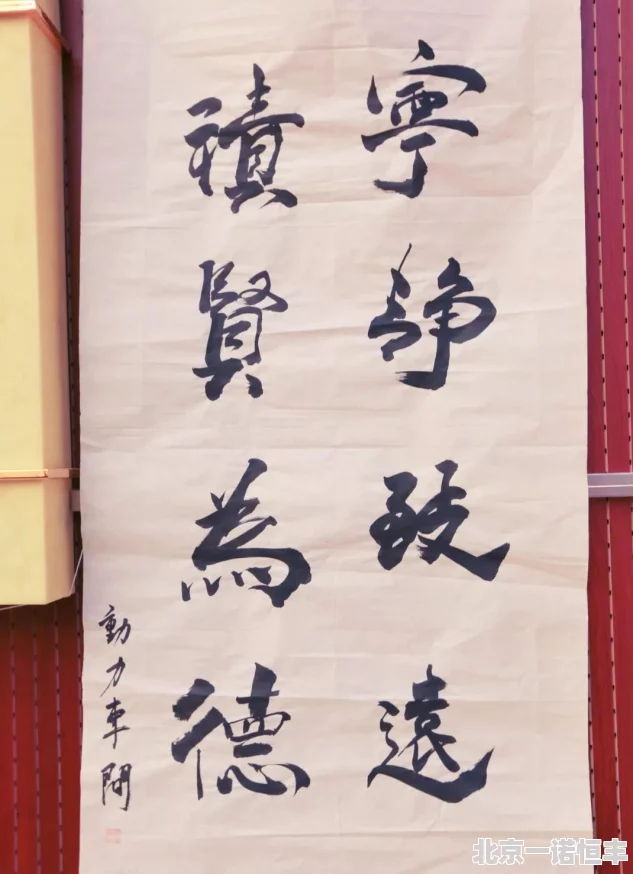 寧靜致遠
積賢為德
動力車闁
北京一诺恒丰